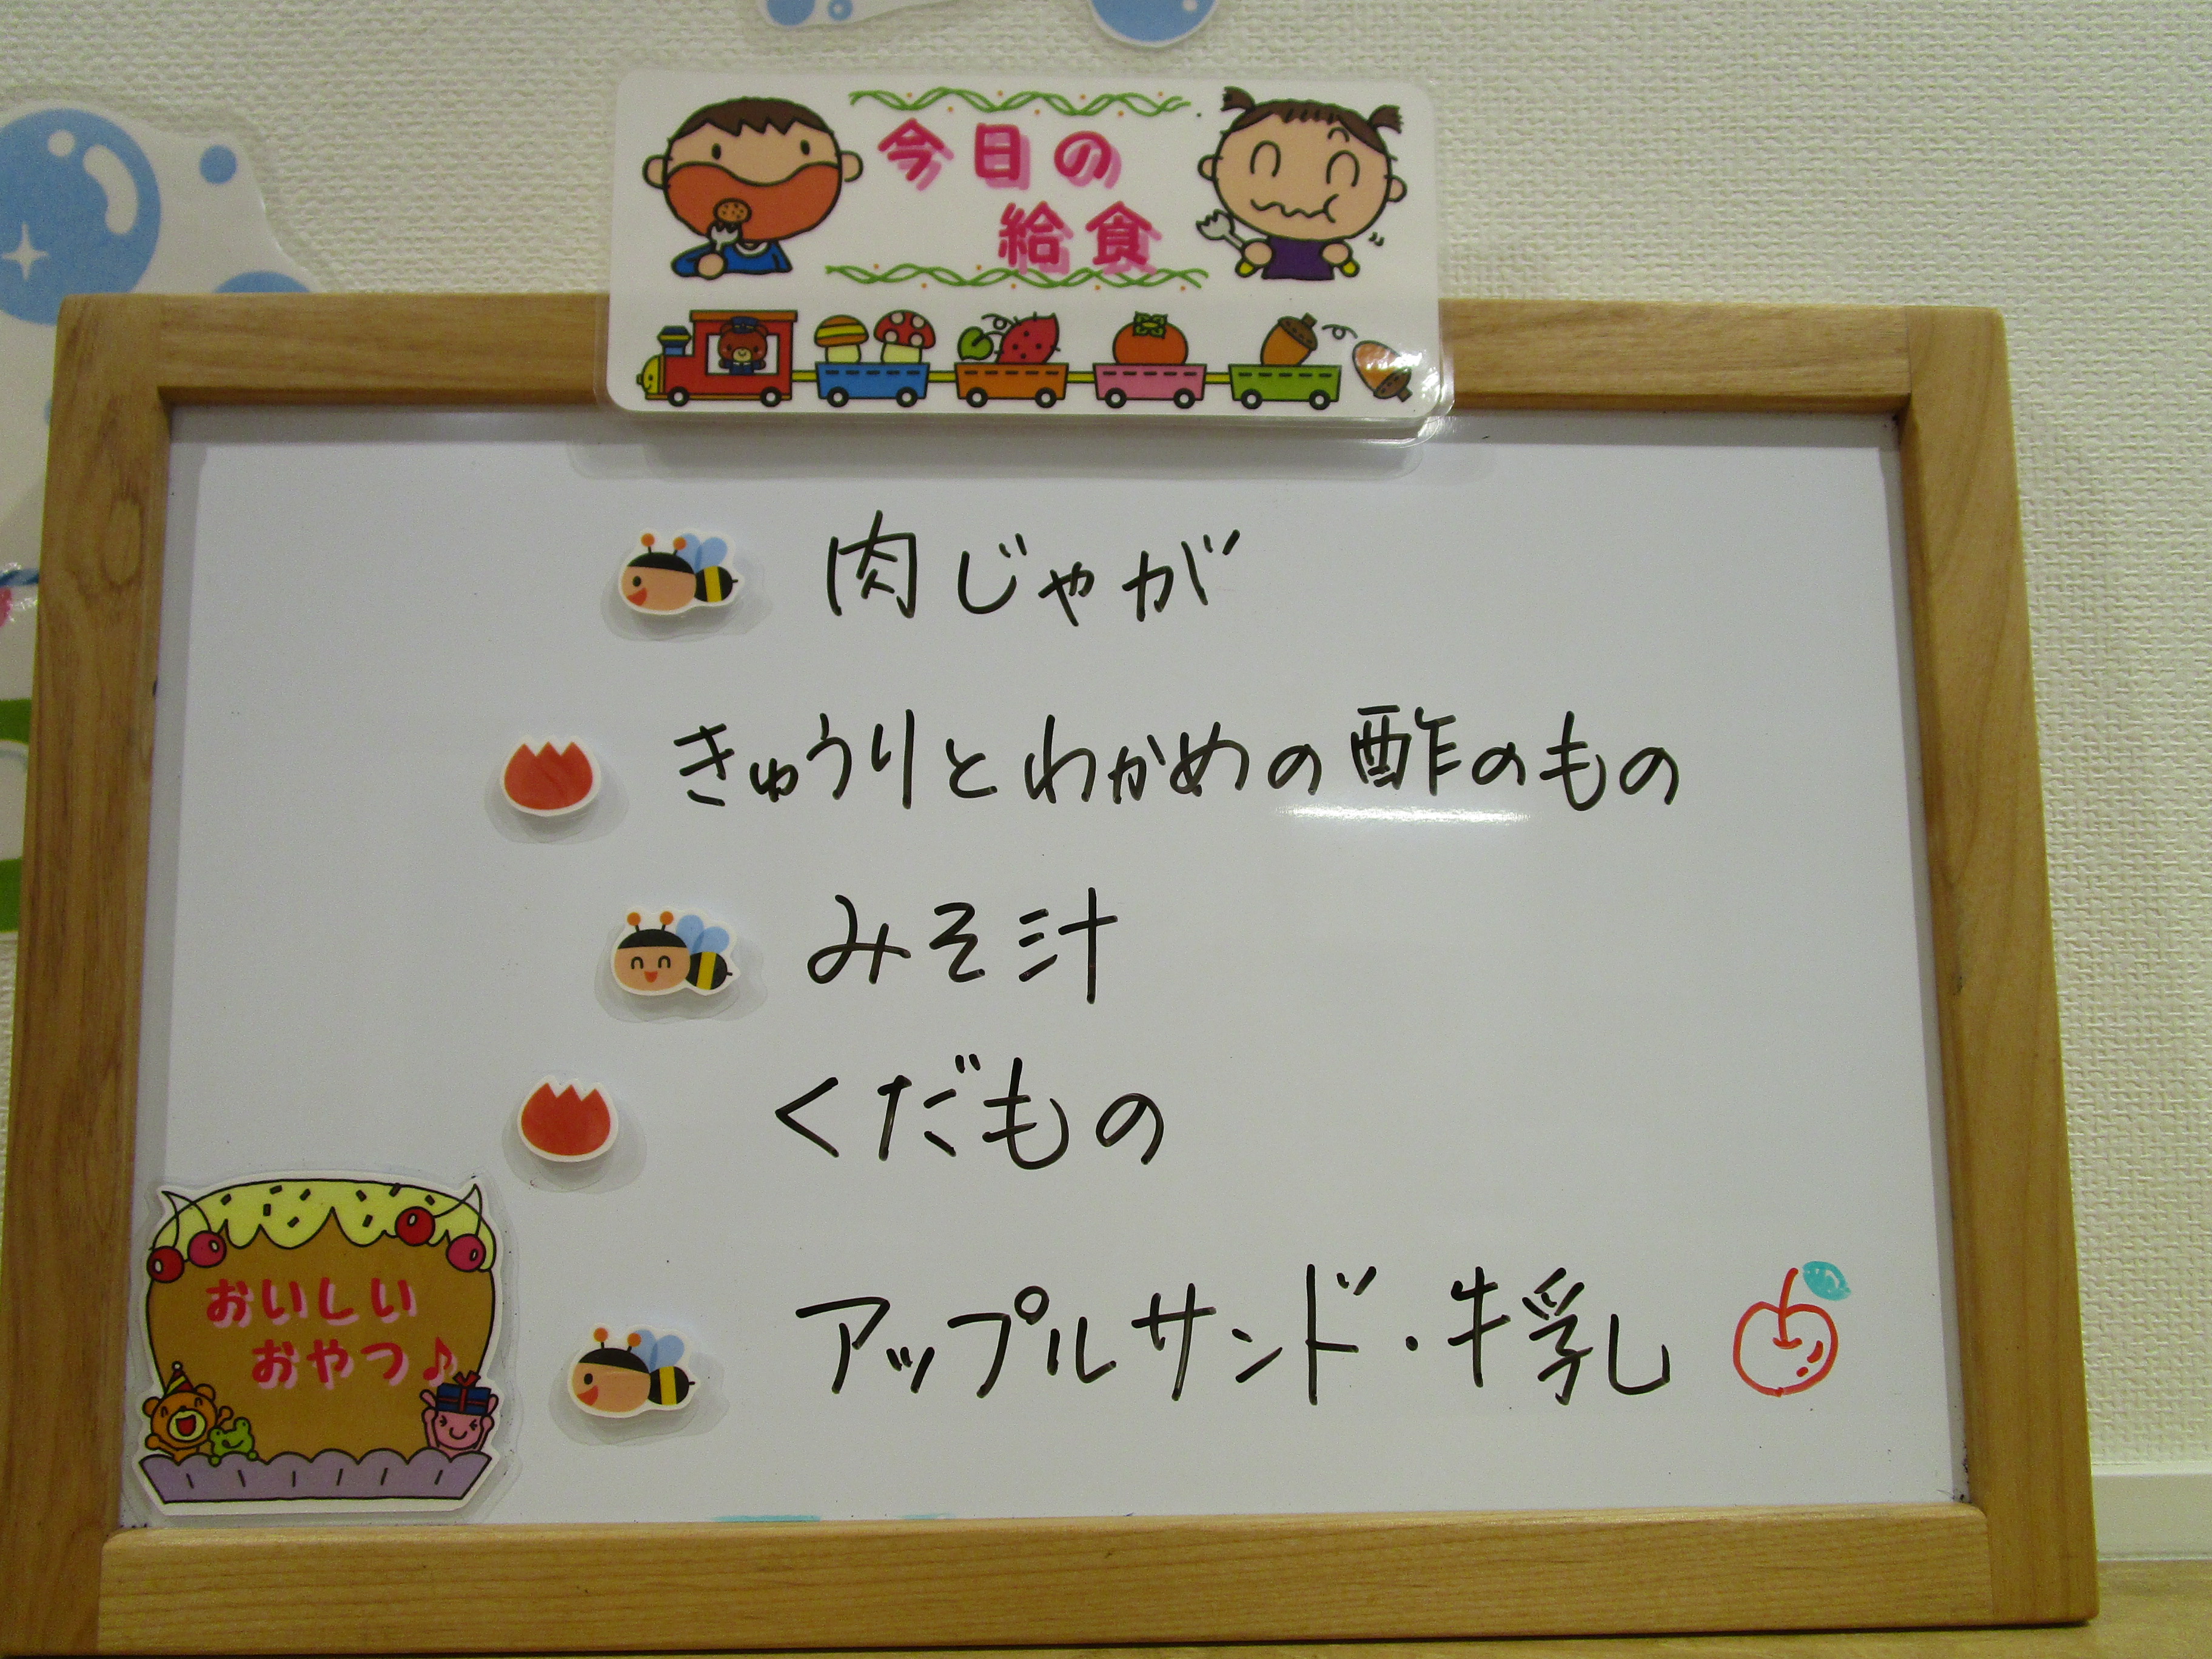 今日の
給食
肉じゃが
きゅうりとわかめの酢のもの
みそ汁
くだもの
おいしい
おやつ♪
アップルサンド・牛乳